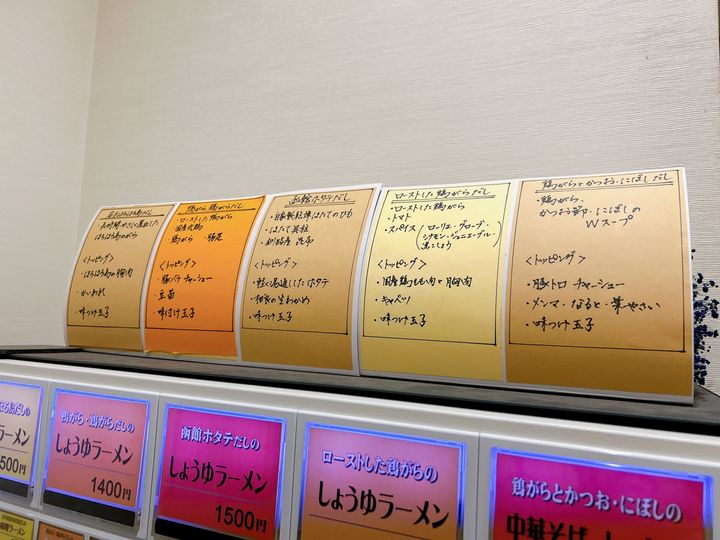 ほろほろ鳥だし
ほろほろ鳥のがら
<トッピング>
・ほろほろ鳥の胸肉
・かいわれ
・味つけ玉子
鴨がら、鶏がらだし
・ローストした鴨がら
・国産丸鶏
鶏がら ・豚足
<トッピング>
・豚バラチャーシュー
・豆苗
・味付け玉子
函館ホタテだし
・自家製乾燥ほたてのひも
・ほたて貝柱
・釧路産 昆布
<トッピング>
・軽く湯通ししたホタテ
・生わかめ
・味つけ玉子
ローストした鶏がらだし
・ローストした鶏がら
・トマト
・スパイス(ローリエ・グローブ・
シナモン・ジュニエーブル・
黒こしょう)
<トッピング>
・国産鶏もも肉と胸肉
・キャベツ
・味つけ玉子
鶏がらとかつお・にぼしだし
・鶏がら、
かつお節・にぼしの
Wスープ
<トッピング>
・豚トロ チャーシュー
・メンマ・なると・葉やさい
・味つけ玉子
ろ鳥だしの
ラーメン
500円
鴨がら・鶏がらだしの
しょうゆラーメン
1400円
函館ホタテだしの
しょうゆラーメン
1500円
ローストした鶏がらの
しょうゆラーメン
鶏がらとかつお・にぼしの
中華そば